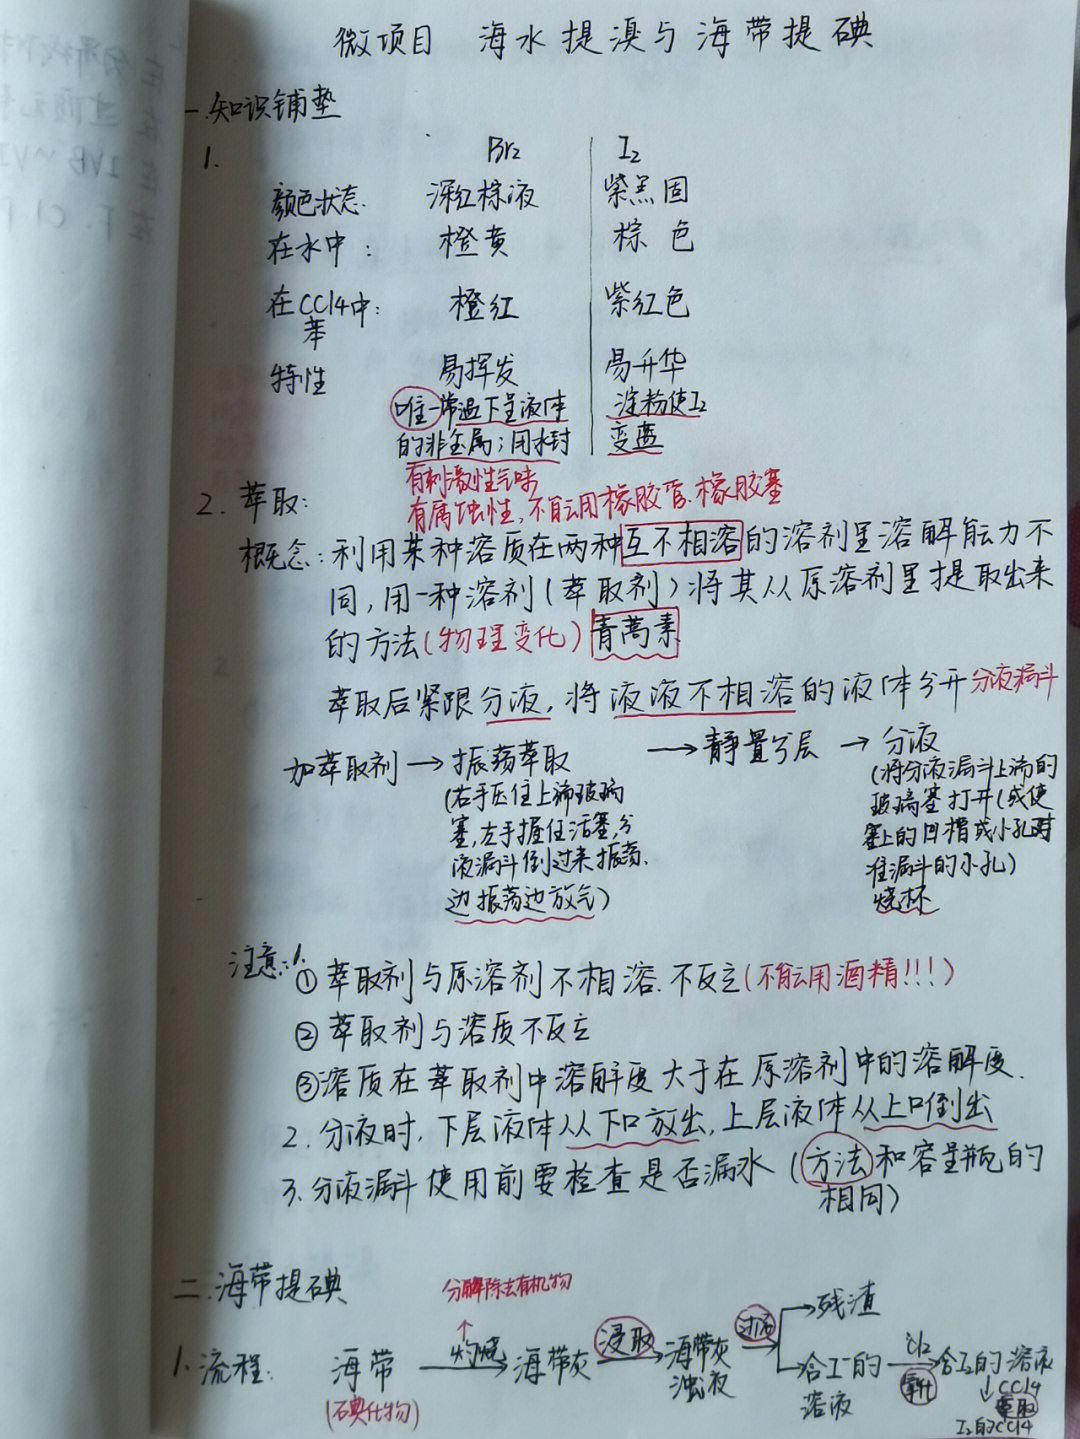 微项目 海水提溴与海带提碘
一.知识铺垫
1. Br₂ I₂
颜色状态. 深红棕液 紫黑固
在水中: 橙黄 棕色
在CCl4中: 橙红 紫红色
苯
特性 易挥发 易升华
唯一常温下呈液体 淀粉使I₂
的非金属;用水封 变蓝
有刺激性气味
有腐蚀性,不能用橡胶管.橡胶塞
2. 萃取:
概念:利用某种溶质在两种互不相溶的溶剂里溶解能力不
同,用一种溶剂(萃取剂)将其从原溶剂里提取出来
的方法(物理变化)青蒿素
萃取后紧跟分液,将液液不相溶的液体分开分液漏斗
加萃取剂→振荡萃取→静置分层→分液
(右手压住上端玻璃
塞,左手握住活塞,分
液漏斗倒过来振荡.
边振荡边放气)
(将分液漏斗上端的
玻璃塞打开(或使
塞上的凹槽或小孔对
准漏斗的小孔)
烧杯
注意:1.
①萃取剂与原溶剂不相溶.不反应(不能用酒精!!!)
②萃取剂与溶质不反应
③溶质在萃取剂中溶解度大于在原溶剂中的溶解度.
2.分液时,下层液体从下口放出,上层液体从上口倒出
3.分液漏斗使用前要检查是否漏水(方法和容量瓶的
相同)
二.海带提碘
分解除去有机物
↑
1.流程: 海带 灼烧→海带灰 浸取→海带灰 过滤→残渣
浊液
(碘化物)
→含I⁻的 Cl2→含I₂的溶液
溶液 氧化
↓CCl4
萃取
I₂的CCl4